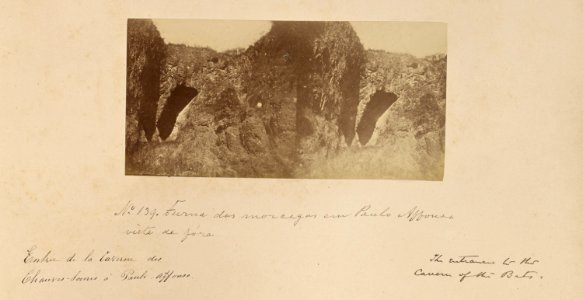 Nº 139. Furna dos morcegos em Paulo Affonso
vista de fóra
Entrée de la Caverne des
Chauves-Souris à Paulo Affonso.
The entrance to the
Cavern of the Bats.